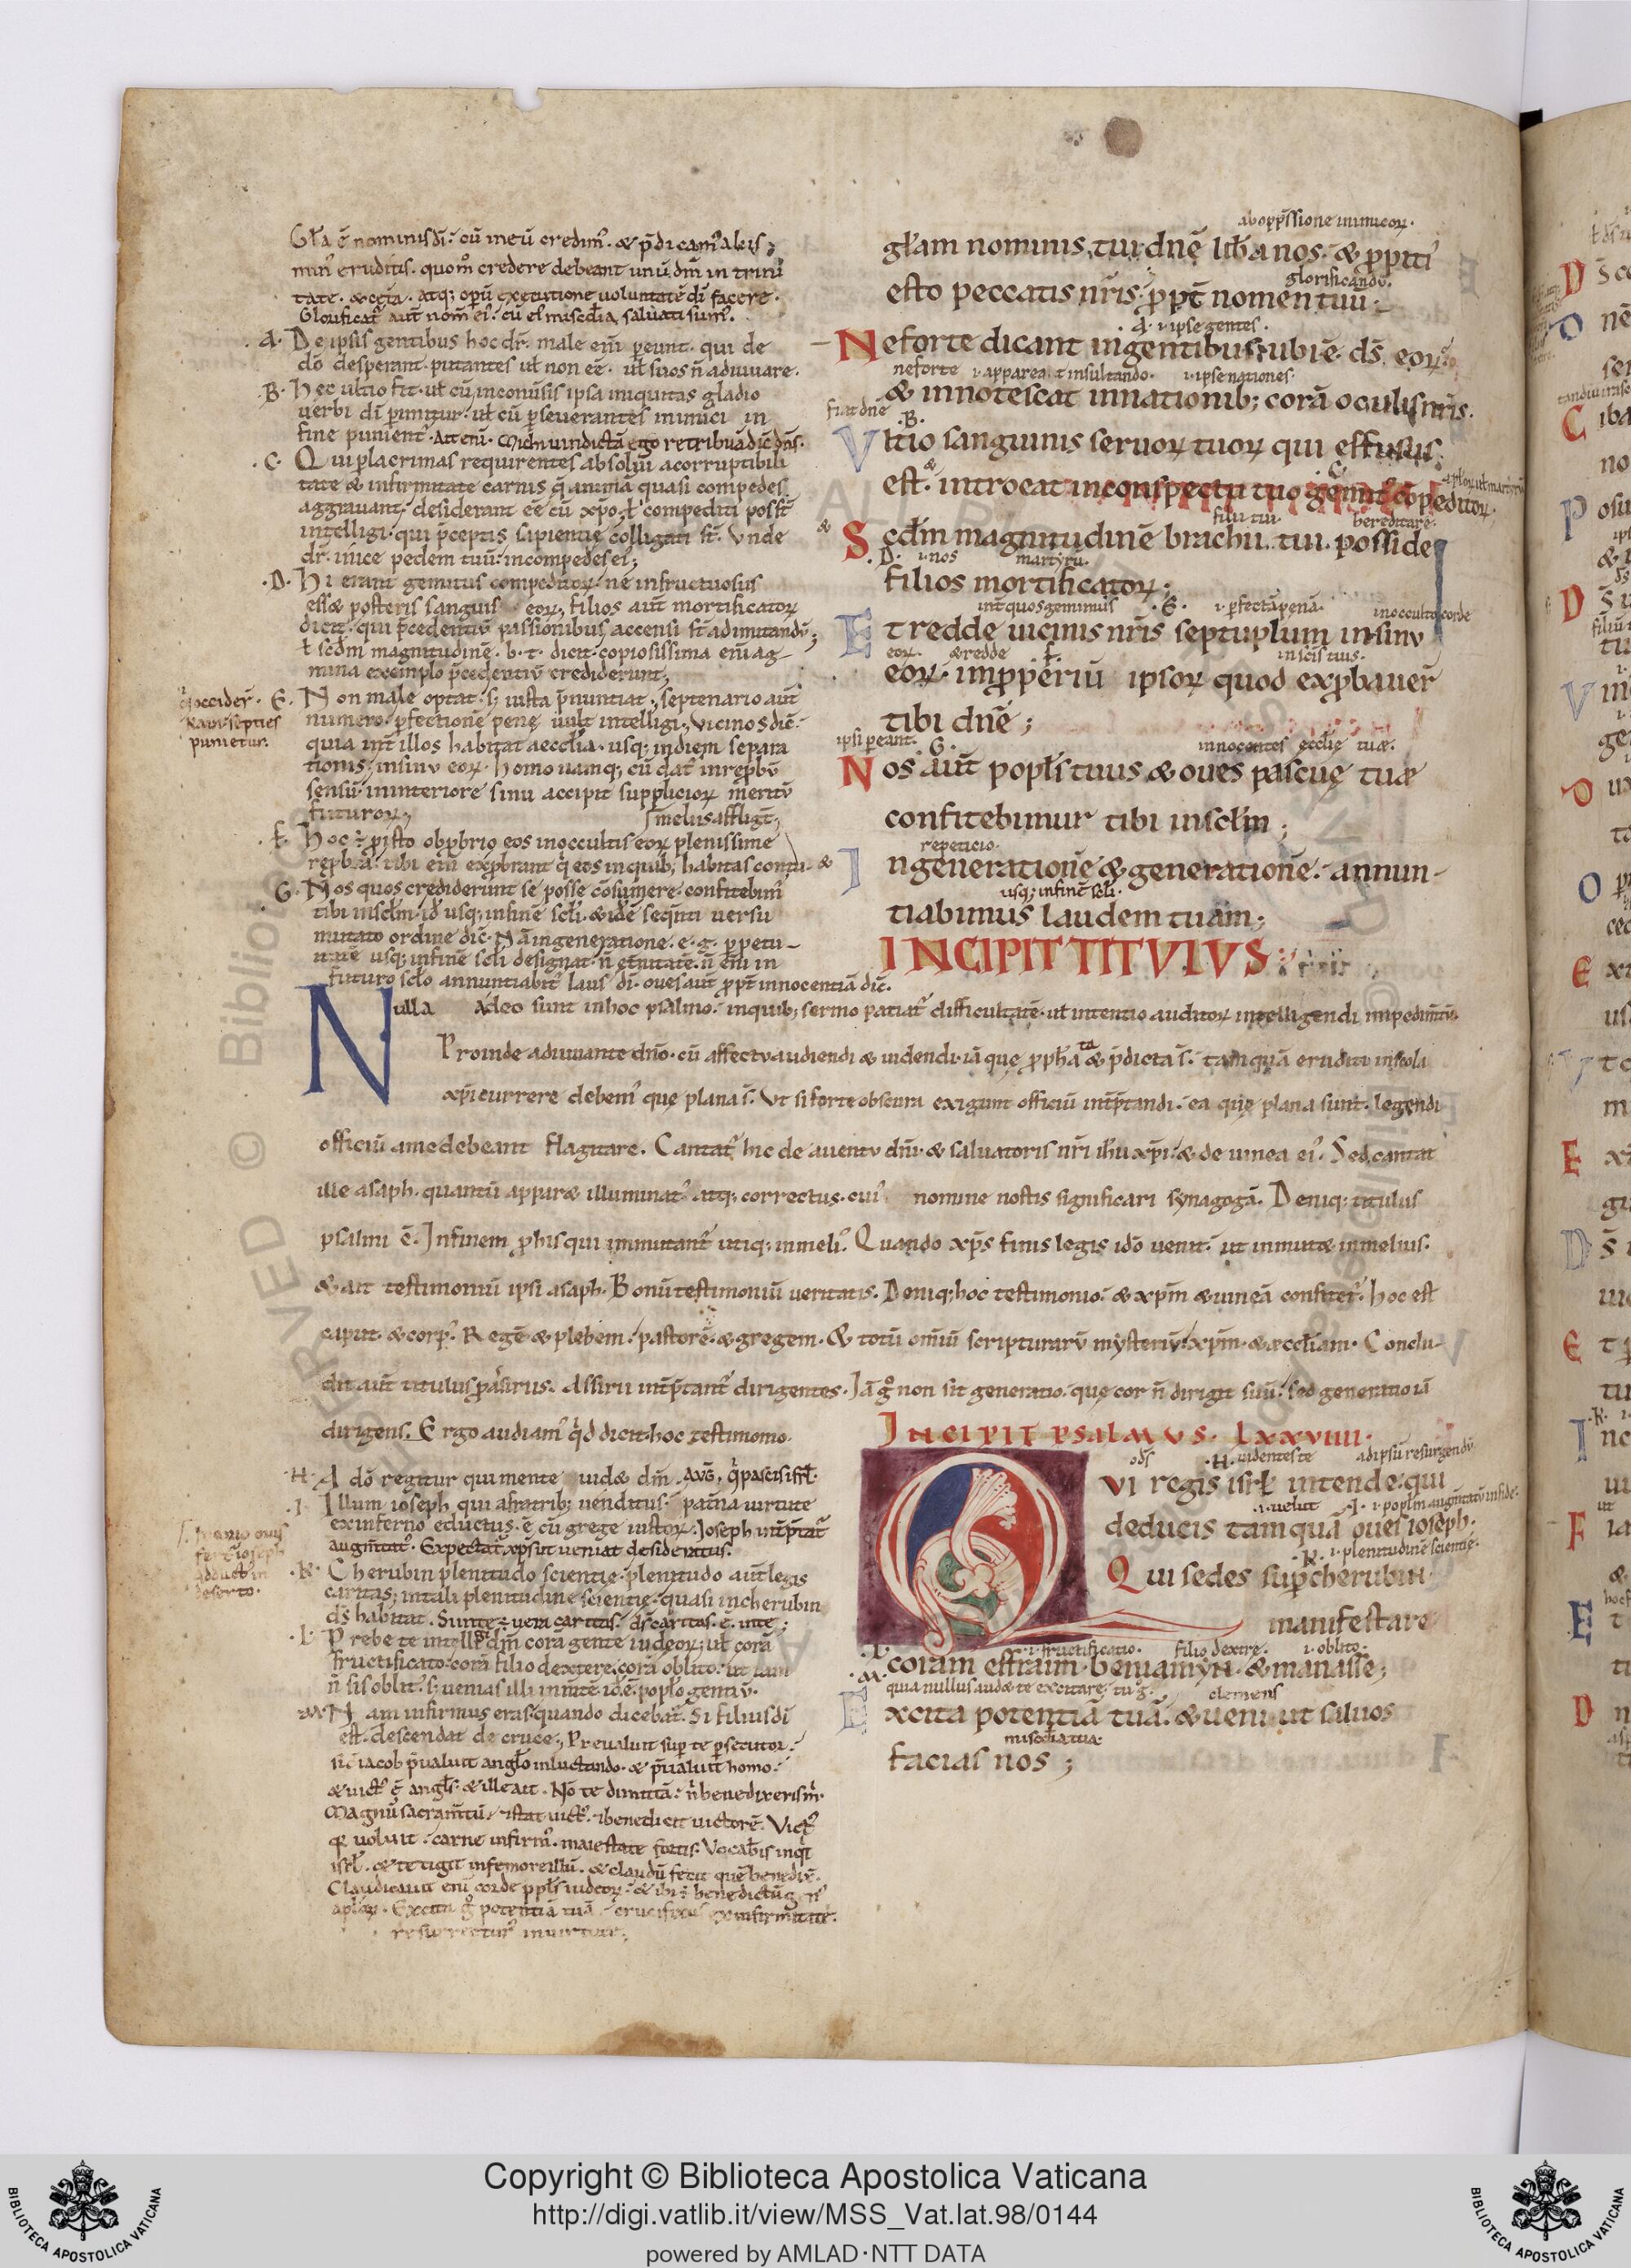 Gl̄a ē nominis dī. cū in eū credim᷒. & p̄dicam᷒ aliis;
tate. & cet̄a. atq; operū exęcutione voluntatē dī facere.
Glorificat᷒ aut̄ nom̄ ei᷒. cū ei᷒ misc̄dia saluati sum᷒.
.A. De ipsis gentibus hoc dr̄. male eni pereunt. qui de
dō desperant. putantes ut̄ non eē. ut̄ suos n̄ adiuuare.
.B. Hec ultio fit. ut̄ cū inconuersis ipsa iniquitas gladio
verbi dī perimitur. ut̄ cū perseuerantes inimici in
fine punient᷒. Michi vindictā ego retribuā dic̄ dn̄s.
.C. Qui p lacrimas requirentes absolui a corruptibili
tate & infirmitate carnis q̄ animā quasi compedes
aggrauant. desiderant eē cū xp̄o. ł compediti poss̄t
intelligi. qui p̄ceptis sapientię colligati st̄. Vnde
dr̄. inice pedem tuū. in compedes ei᷒;
.D. Hi erant gemitus compeditoꝝ. ne infructuosus
ess& posteris sanguis eoꝝ, filios aut̄ mortificatoꝝ
dicit. qui p̄cedentiū passionibus accensi st̄ ad imitandū;
ł scdm magnitudinē. b. t. dicit. copiosissima eni ag
mina exemplo p̄cedentiū crediderunt;
q̄ occider̄.
Kain septies
punietur.
.E. Non male optat. s; iusta p̄nuntiat, septenario aut̄
numero. pfectionē penę uult intelligi, vicinos dic̄.
quia int̄ illos habitat aecclia. usq; in diem separa
tionis, in sinu eoꝝ. homo namq; cū dat᷒ in reprobū
sensū. in interiore sinu accipit suppliciorꝝ meritū
futuroꝝ,
.F. Hoc ÷ p isto obprobrio eos in occultis eoꝝ plenissime
repbra. tibi eni exprobrant q̄ eos in quib; habitas contu-
melus affligt̄;
.G. Nos quos crediderunt se posse consumere. confitebim᷒
tibi in sclm. id ÷ usq; in finē scli. & idē sequenti versu
mutato ordine dic̄. Nā in generatione. e. g. perpetu-
usq; in finē scli designat. n̄ et̄nitatē. n̄ eni in
futuro sclo annuntiabit᷒ laus dī. oues aut̄ ppt̄ innocentiā dic̄.
ab opp̄ssione inimicoꝝ.
gl̄am nominis tui dn̄e lib̄a nos. & ppiti᷒
glorificandū.
esto peccatis nr̄is. ppt̄ nomen tuū;
.A. i. ipse gentes.
Ne forte dicant in gentibus. ubi ē d̄s eoꝝ.
ne forte i. apparea t insultando. i. ipse nationes.
& innotescat in nationib; corā oculis nr̄is.
fiat dn̄e .B.
Vltio sanguinis seruoꝝ tuoꝝ qui effusus
est. introeat in conspectu tuo gemit᷒ cōpeditoꝝ.
filii tui. hereditare.
& Scdm magnitudinē brachii tui. posside
.D. i. nos martyrū.
filios mortificatoꝝ;
int̄ quos gemimus .E. i. pfectā penā. in occulto corde
Et redde uicinis nr̄is septuplum in sinu
eoꝝ. & redde .F. in sc̄is tuis.
eoꝝ. impperiū ipsoꝝ quod expbauer̄
tibi dn̄e;
ipsi pereant. .G. innocentes ecclię tuæ.
Nos aut̄ popls tuus & oues pascuę tuæ
confitebimur tibi in sclm;
repeticio.
& In generationē & generationē. annun-
usq; in finē scli.
tiabimus laudem tuam;
INCIPIT TITVLVS
Nulla Adeo sunt in hoc psalmo. in quib; sermo patiat᷒ difficultatē. ut intentio auditoꝝ intelligendi impedim̄tū.
Proinde adiuuante dn̄o. cū affectu audiendi & uidendi. iā quę pphata & p̄dicta s̄. tamquā eruditi in scola
xp̄i currere debem᷒ que plana s̄. Vt si forte obscura exigunt officiū int̄p̄tandi. ea quę plana sunt. legendi
officiū a me debeant flagitare. Cantat᷒ hic de aduentu dn̄i. & saluatoris nr̄i ih̄u xp̄i. & de uinea ei᷒. Sed cantat
ille asaph. quantū appar& illuminat᷒ atq; correctus. cui᷒ nomine nostis significari synagogā. Deniq; titulus
psalmi ē. In finem p his qui inmutant᷒ utiq; in meli᷒. Quando xp̄s finis legis idō uenit. ut inmut& in melius.
& ait testimoniū ipsi asaph. Bonū testimoniū ueritatis. Deniq; hoc testimonio. & xp̄m & uineā confitet᷒. hoc est
caput & corp᷒. Regē & plebem. pastorē. & gregem. & totū om̄iū scripturarū mysteriū. xp̄m. & æccliam. Conclu-
dit aut̄ titulus p assirus. Assirii int̄p̄tant᷒ dirigentes. Iā g̊ non sit generatio. que cor n̄ dirigit suū. sed generatio iā
dirigens. Ergo audiam᷒ q̄d dicit hoc testimonio.
Incipit psalmus. LXXVIIII.
.H. A dō regitur qui mente uid& dm̄. Aug̅. q̄ pascis isrł.
.I. Illum ioseph qui a fratrib; uenditus. pat̄na uirtute
ex inferno eductus ē cū grege iustoꝝ. Ioseph int̄p̄tat᷒
augm̄tat᷒. Expectat᷒ xp̄s ut ueniat desideratus.
.K. Cherubin plenitudo scientię. plenitudo aut̄ legis
caritas; in tali plenitudine scientię. quasi in cherubin
ds̄ habitat. Sit in te uera caritas. ds̄ caritas. ē in te;
.L. Prebe te intelligi dm̄ corā gente iudeoꝝ; ut̄ corā
fructificato. corā filio dextere. corā oblito. ut iam
n̄ sis oblit᷒. s; uenias illi in mentē id ē poplo gentiū.
.M. Nam infirmus eras quando diceba᷒t. Si filius dī
est. descendat de cruce; Preualuit sup te p̄secutor.
sic iacob p̄ualuit anglo in luctando. & p̄ualuit homo.
& uict᷒ ē angls. & ille ait. Nō te dimittā. n̄ benedixeris m̄.
Magnū sacram̄tū. & stat uict᷒. & benedicit uictorē. Vict᷒
q̄ uoluit. carne infirm᷒. maiestate fortis. Vocab̄is inq̄t
isrł. & tetigit in femore illū. & claudū fecit quē benedix̄.
Claudicauit eni corde ppls iudeoꝝ. & ibi ÷ benedictū gen᷒
aploꝝ. Excita g̊ potentiā tuā. crucifixus ex infirmitate.
resurrectur᷒ in uirtute;
o ds̄ .H. uidentes te ad ipsū resurgendū
Qvi regis isrł intende. qui
i. uelut .I. i. poplm augm̄tatū in fide.
deducis tamquā oues ioseph.
.K. i. plenitudinē scientię.
Qui sedes sup cherubin.
manifestare
.L. i. fructificatio. filio dextre. i. oblito.
coram effraim. beniamyn. & manasse;
.M. quia nullus aud& te excitare. tu g̊. clemens
Excita potentiā tuā. & ueni ut saluos
misc̄dia tua.
facias nos;
Copyright © Biblioteca Apostolica Vaticana
http://digi.vatlib.it/view/MSS_Vat.lat.98/0144
powered by AMLAD·NTT DATA
BIBLIOTECA APOSTOLICA VATICANA
BIBLIOTECA APOSTOLICA VATICANA